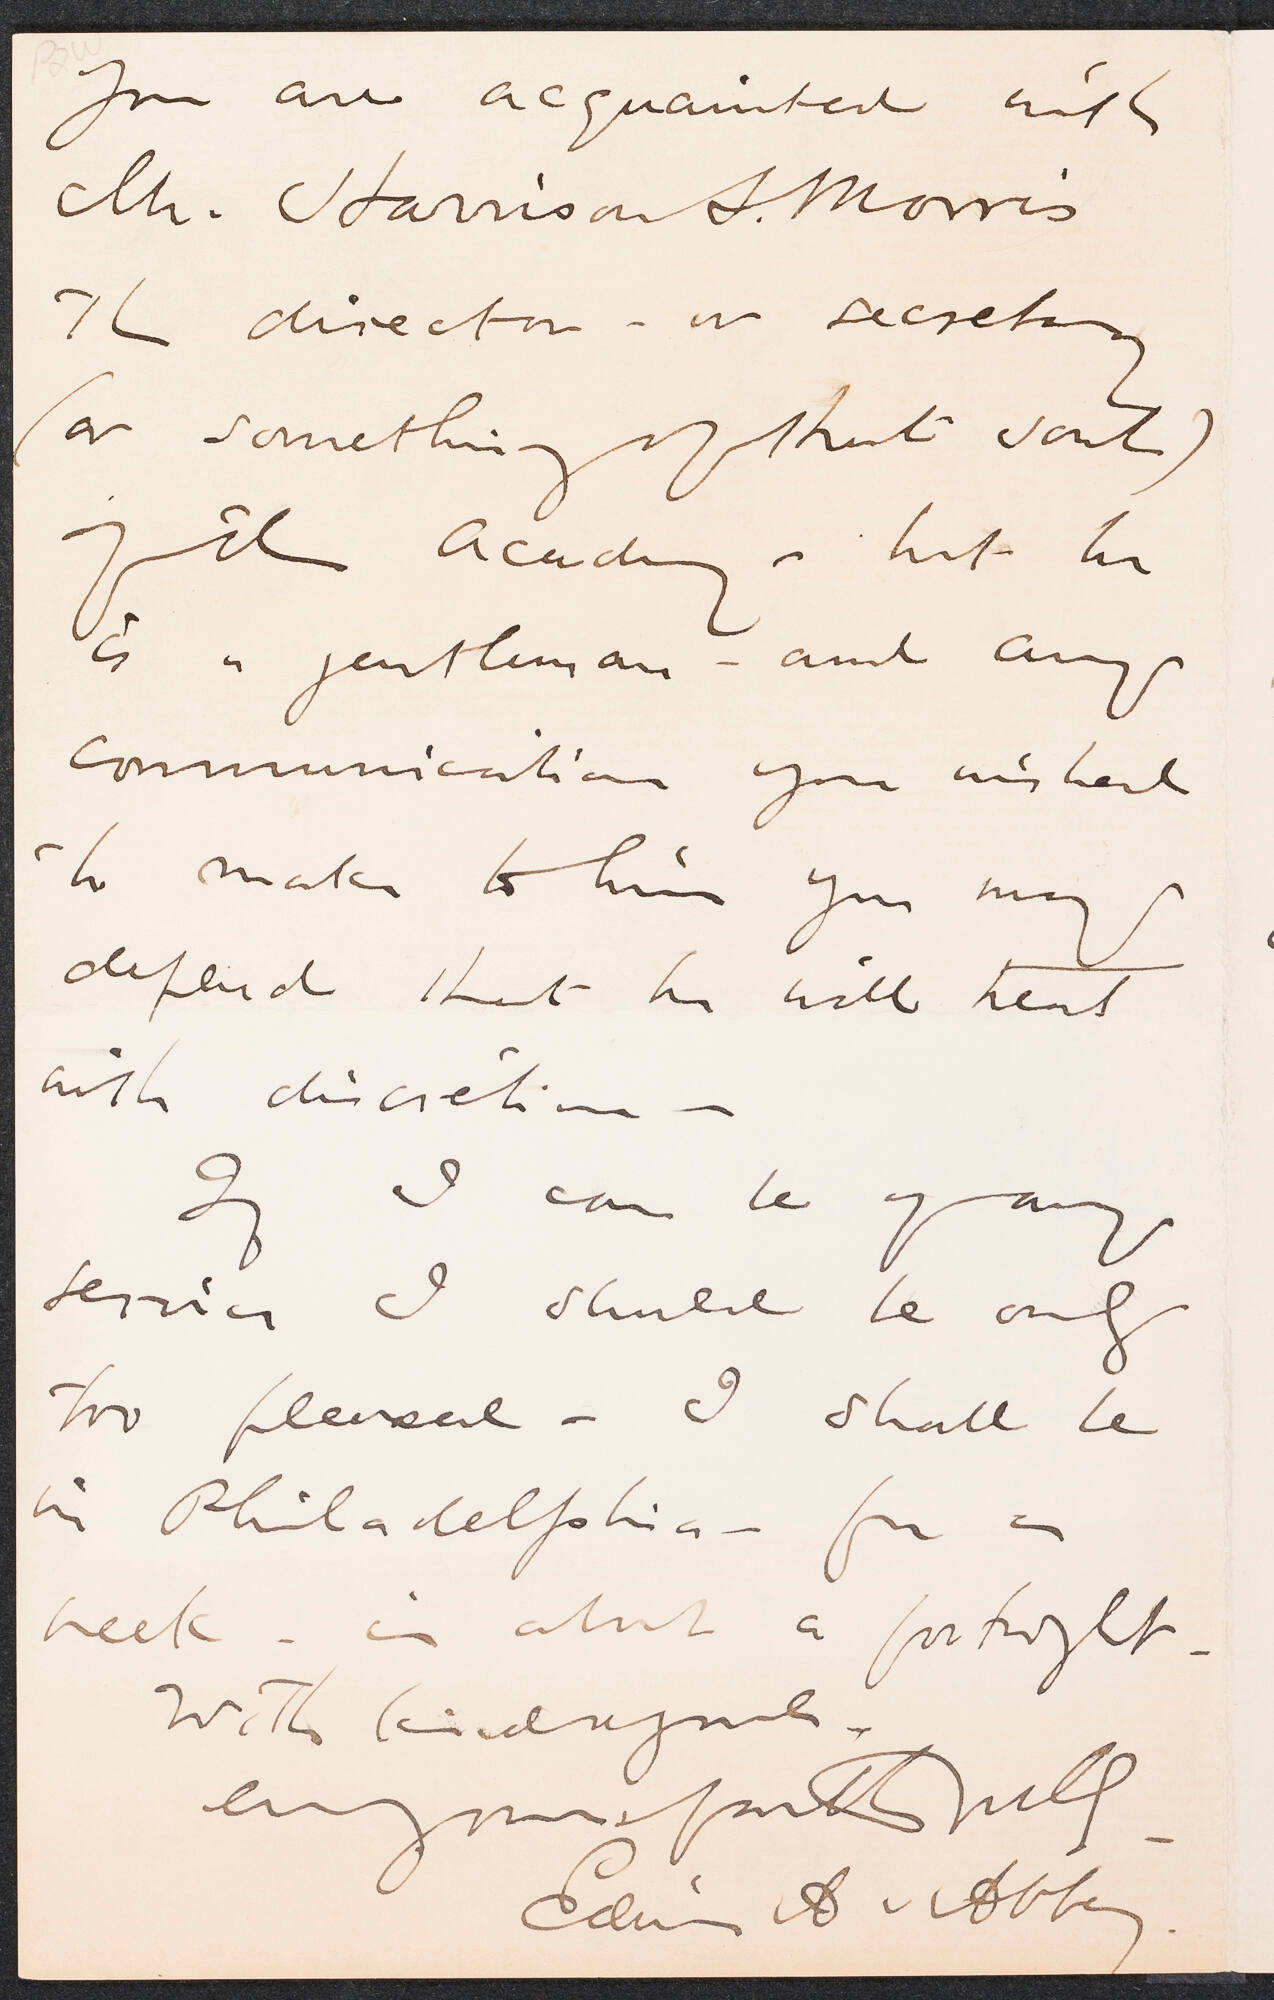 you are acquainted with
Mr. Harrison S. Morris
the director - or secretary
(or something of that sort)
of the Academy - but he
is a gentleman - and any
communication you wished
to make to him you may
depend that he will treat
with discretion -
If I can be of any
service I should be only
too pleased - I shall be
in Philadelphia - for a
week - in about a fortnight -
With kind regards -
ever yours faithfully -
Edwin A Abbey.